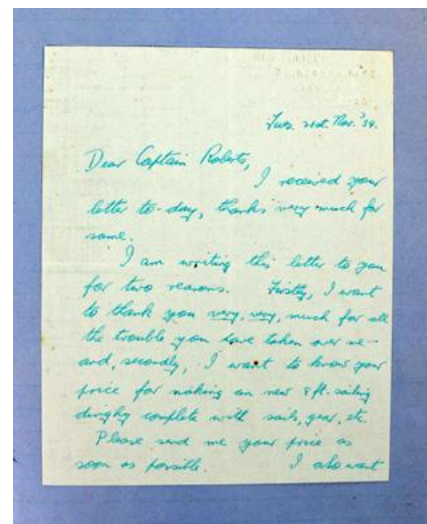 Tues. 21st. Nov. '39.
Dear Captain Roberts,
I received your
letter to-day, thanks very much for
same.
I am writing this letter to you
for two reasons. Firstly, I want
to thank you very, very, much for all
the trouble you have taken over me
and, secondly, I want to know your
price for making an new 8 ft. sailing
dinghy complete with sails, gear, etc.
Please send me your price as
soon as possible. I also want